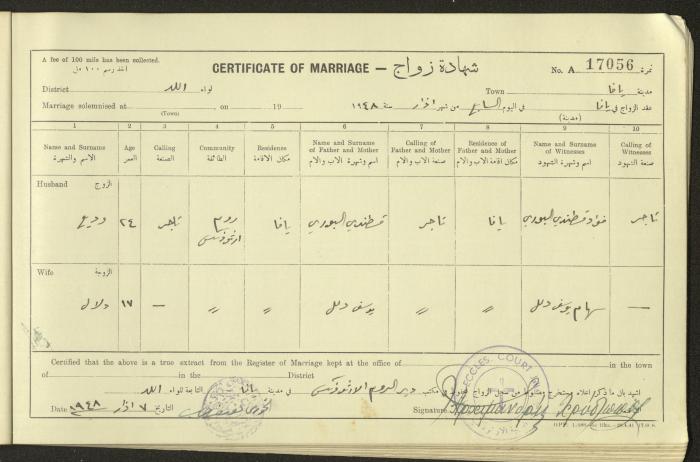 A fee of 100 mils has been collected.
اخذ رسم ١٠٠ مل
CERTIFICATE OF MARRIAGE – شهادة زواج
No. A 17056 نمرة
District لواء اللد
Town مدينة يافا
Marriage solemnised at , on 19
(Town)
عقد الزواج في يافا في اليوم السابع من شهر اذار سنة ١٩٤٨
(مدينة)
1 2 3 4 5 6 7 8 9 10
Name and Surname Age Calling Community Residence Name and Surname of Father and Mother Calling of Father and Mother Residence of Father and Mother Name and Surname of Witnesses Calling of Witnesses
الاسم والشهرة العمر الصنعة الطائفة مكان الاقامة اسم وشهرة الاب والام صنعة الاب والام مكان اقامة الاب والام اسم وشهرة الشهود صنعة الشهود
Husband الزوج
وديع ٢٤ تاجر روم ارثوذكس يافا قسطندي البوري تاجر يافا فؤاد قسطندي البوري تاجر
Wife الزوجة
دلال ١٧ — 〃 〃 يوسف 〃 〃 سهام يوسف —
Certified that the above is a true extract from the Register of Marriage kept at the office of in the town
of in the District
اشهد بان ما ذكر اعلاه مستخرج من سجل الزواج في مكتب دير الروم الارثوذكسي في مدينة يافا التابعة للواء اللد
Date التاريخ ٧ اذار ١٩٤٨
Signature
ECCLES. COURT